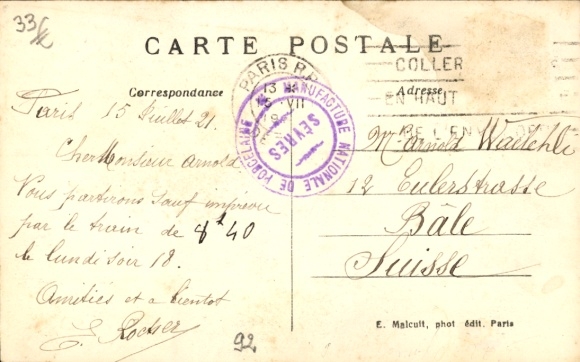 33
CARTE POSTALE
PARIS R.P.
13
VII
COLLER
EN HAUT
MANUFACTURE NATIONALE DE PORCELAINE
SÈVRES
Correspondance
Adresse
Paris 15 Juillet 21.
Cher Monsieur Arnold
Vous partirons sauf imprévu
par le train de 8h40
le lundi soir 18.
Amitiés et a bientot
E. Rocher
Mr Arnold Waelchli
12 Eulerstrasse
Bâle
Suisse
92
E. Malcuit, phot édit. Paris